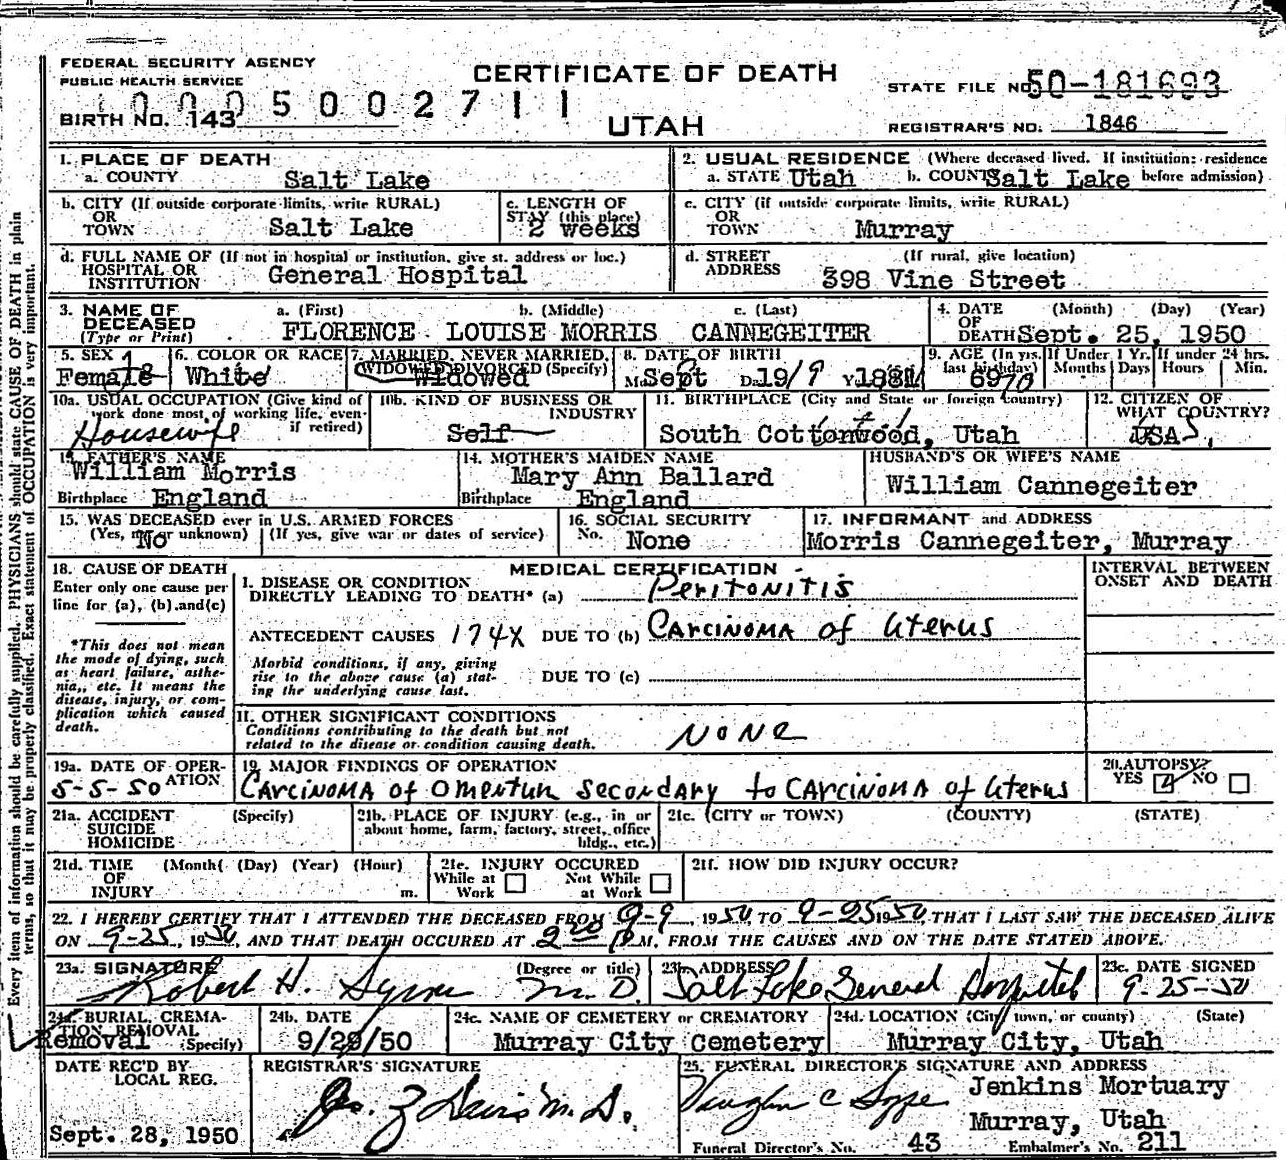 FEDERAL SECURITY AGENCY
PUBLIC HEALTH SERVICE
CERTIFICATE OF DEATH
STATE FILE NO. 50-181693
0005002711
BIRTH NO. 143
UTAH
REGISTRAR'S NO. 1846
1. PLACE OF DEATH
a. COUNTY Salt Lake
2. USUAL RESIDENCE (Where deceased lived. If institution: residence before admission)
a. STATE Utah b. COUNTY Salt Lake
b. CITY (If outside corporate limits, write RURAL)
OR
TOWN Salt Lake
c. LENGTH OF
STAY (this place)
2 weeks
c. CITY (if outside corporate limits, write RURAL)
OR
TOWN Murray
d. FULL NAME OF (If not in hospital or institution, give st. address or loc.)
HOSPITAL OR
INSTITUTION General Hospital
d. STREET (If rural, give location)
ADDRESS 398 Vine Street
3. NAME OF DECEASED
(Type or Print)
a. (First) b. (Middle) c. (Last)
FLORENCE LOUISE MORRIS CANNEGEITER
4. DATE OF DEATH (Month) (Day) (Year)
Sept. 25, 1950
5. SEX
Female
6. COLOR OR RACE
White
7. MARRIED, NEVER MARRIED,
WIDOWED, DIVORCED (Specify)
Widowed
8. DATE OF BIRTH
Sept 19/9 1881
9. AGE (In yrs. last birthday) If Under 1 Yr. If under 24 hrs.
Months Days Hours Min.
69 70
10a. USUAL OCCUPATION (Give kind of
work done most of working life, even
if retired)
Housewife
10b. KIND OF BUSINESS OR
INDUSTRY
Self
11. BIRTHPLACE (City and State or foreign country)
South Cottonwood, Utah
12. CITIZEN OF
WHAT COUNTRY?
USA
13. FATHER'S NAME
William Morris
Birthplace England
14. MOTHER'S MAIDEN NAME
Mary Ann Ballard
Birthplace England
HUSBAND'S OR WIFE'S NAME
William Cannegeiter
15. WAS DECEASED ever in U.S. ARMED FORCES
(Yes, no, or unknown) (If yes, give war or dates of service)
No
16. SOCIAL SECURITY
No. None
17. INFORMANT and ADDRESS
Morris Cannegeiter, Murray
18. CAUSE OF DEATH
Enter only one cause per
line for (a), (b) and (c)
*This does not mean
the mode of dying, such
as heart failure, asthe-
nia, etc. It means the
disease, injury, or com-
plication which caused
death.
MEDICAL CERTIFICATION
INTERVAL BETWEEN
ONSET AND DEATH
I. DISEASE OR CONDITION
DIRECTLY LEADING TO DEATH* (a) Peritonitis
ANTECEDENT CAUSES 174X DUE TO (b) Carcinoma of Uterus
Morbid conditions, if any, giving
rise to the above cause (a) stat-
ing the underlying cause last.
DUE TO (c)
II. OTHER SIGNIFICANT CONDITIONS
Conditions contributing to the death but not
related to the disease or condition causing death.
None
19a. DATE OF OPER-
ATION
5-5-50
19. MAJOR FINDINGS OF OPERATION
Carcinoma of Omentum secondary to Carcinoma of Uterus
20. AUTOPSY?
YES NO
21a. ACCIDENT (Specify)
SUICIDE
HOMICIDE
21b. PLACE OF INJURY (e.g., in or
about home, farm, factory, street, office
bldg., etc.)
21c. (CITY or TOWN) (COUNTY) (STATE)
21d. TIME (Month) (Day) (Year) (Hour)
OF
INJURY m.
21e. INJURY OCCURED
While at Work Not While at Work
21f. HOW DID INJURY OCCUR?
22. I HEREBY CERTIFY THAT I ATTENDED THE DECEASED FROM 9-9, 1950 TO 9-25 1950, THAT I LAST SAW THE DECEASED ALIVE
ON 9-25, 1950, AND THAT DEATH OCCURED AT 2 P M, FROM THE CAUSES AND ON THE DATE STATED ABOVE.
23a. SIGNATURE (Degree or title)
Robert H. M.D.
23b. ADDRESS
Salt Lake General Hospital
23c. DATE SIGNED
9-25-50
24a. BURIAL, CREMA-
TION, REMOVAL
(Specify)
Removal
24b. DATE
9/29/50
24c. NAME OF CEMETERY or CREMATORY
Murray City Cemetery
24d. LOCATION (City, town, or county) (State)
Murray City, Utah
DATE REC'D BY
LOCAL REG.
Sept. 28, 1950
REGISTRAR'S SIGNATURE
25. FUNERAL DIRECTOR'S SIGNATURE AND ADDRESS
Jenkins Mortuary
Murray, Utah
Funeral Director's No. 43 Embalmer's No. 211
Every item of information should be carefully supplied. PHYSICIANS should state CAUSE OF DEATH in plain
terms, so that it may be properly classified. Exact statement of OCCUPATION is very important.